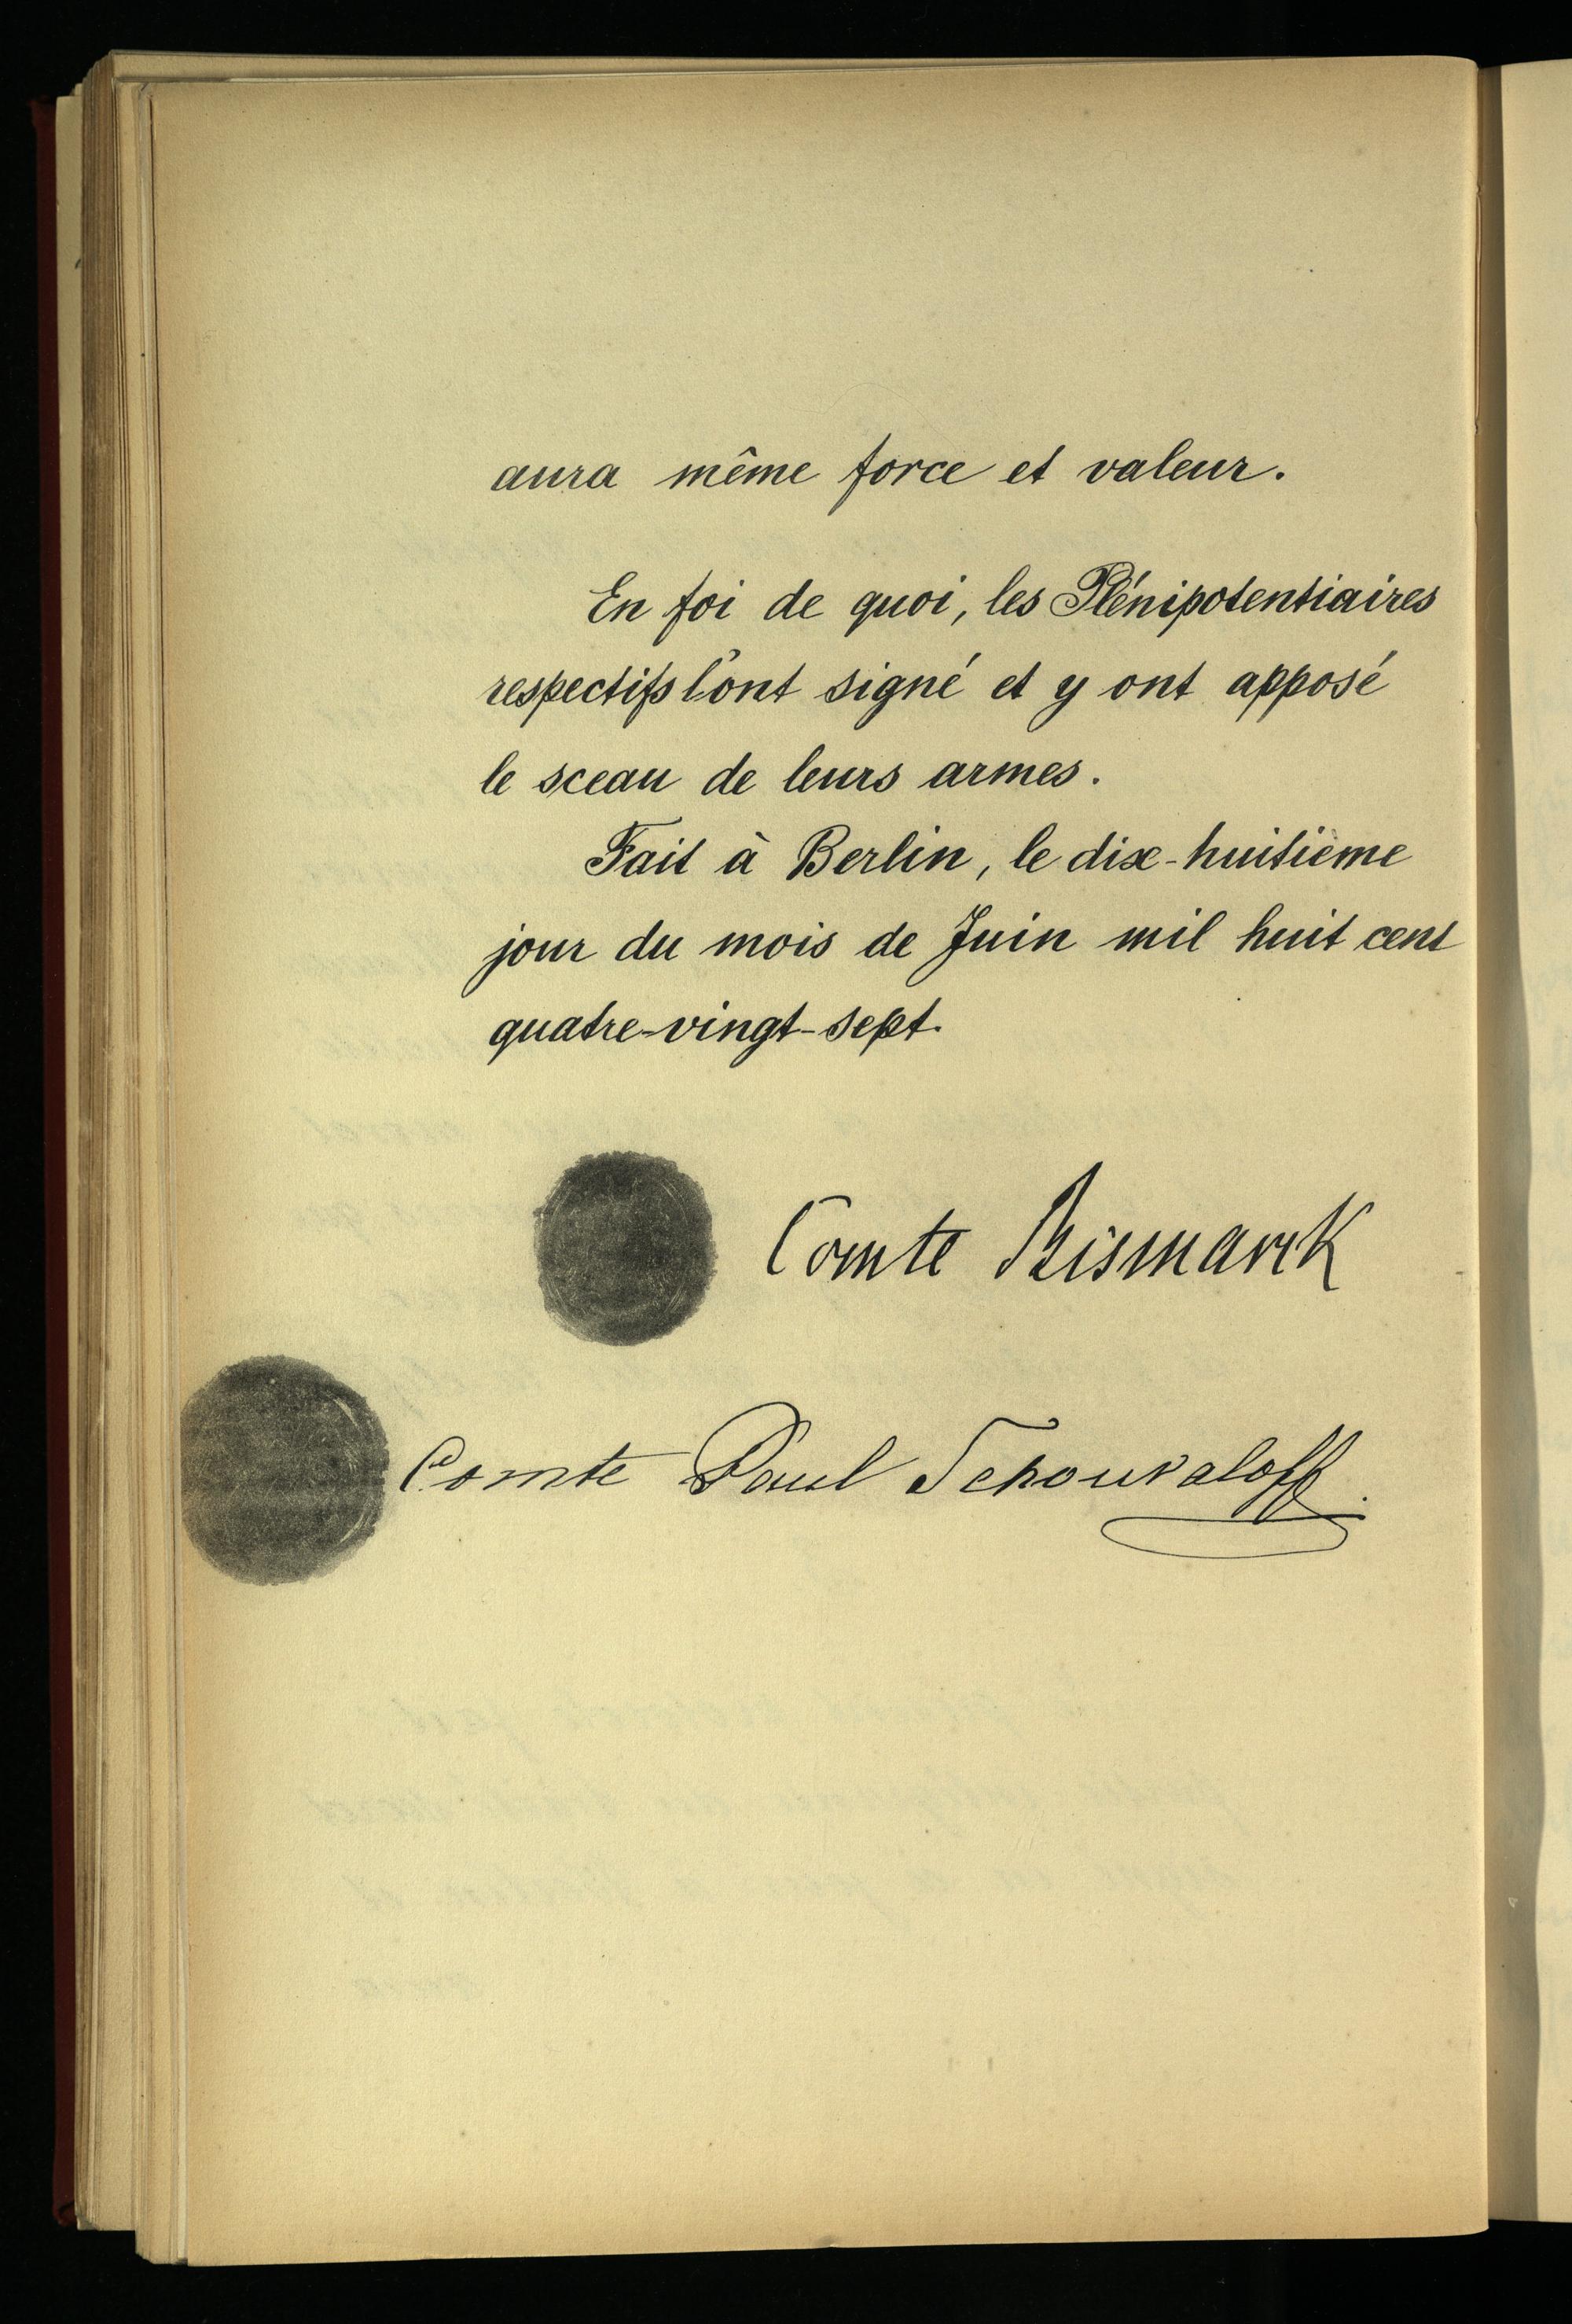 aura même force et valeur.
En foi de quoi, les Plénipotentiaires
respectifs l'ont signé et y ont apposé
le sceau de leurs armes.
Fait à Berlin, le dix-huitième
jour du mois de Juin mil huit cent
quatre-vingt-sept.
Comte Bismarck
Comte Paul Schouvaloff.